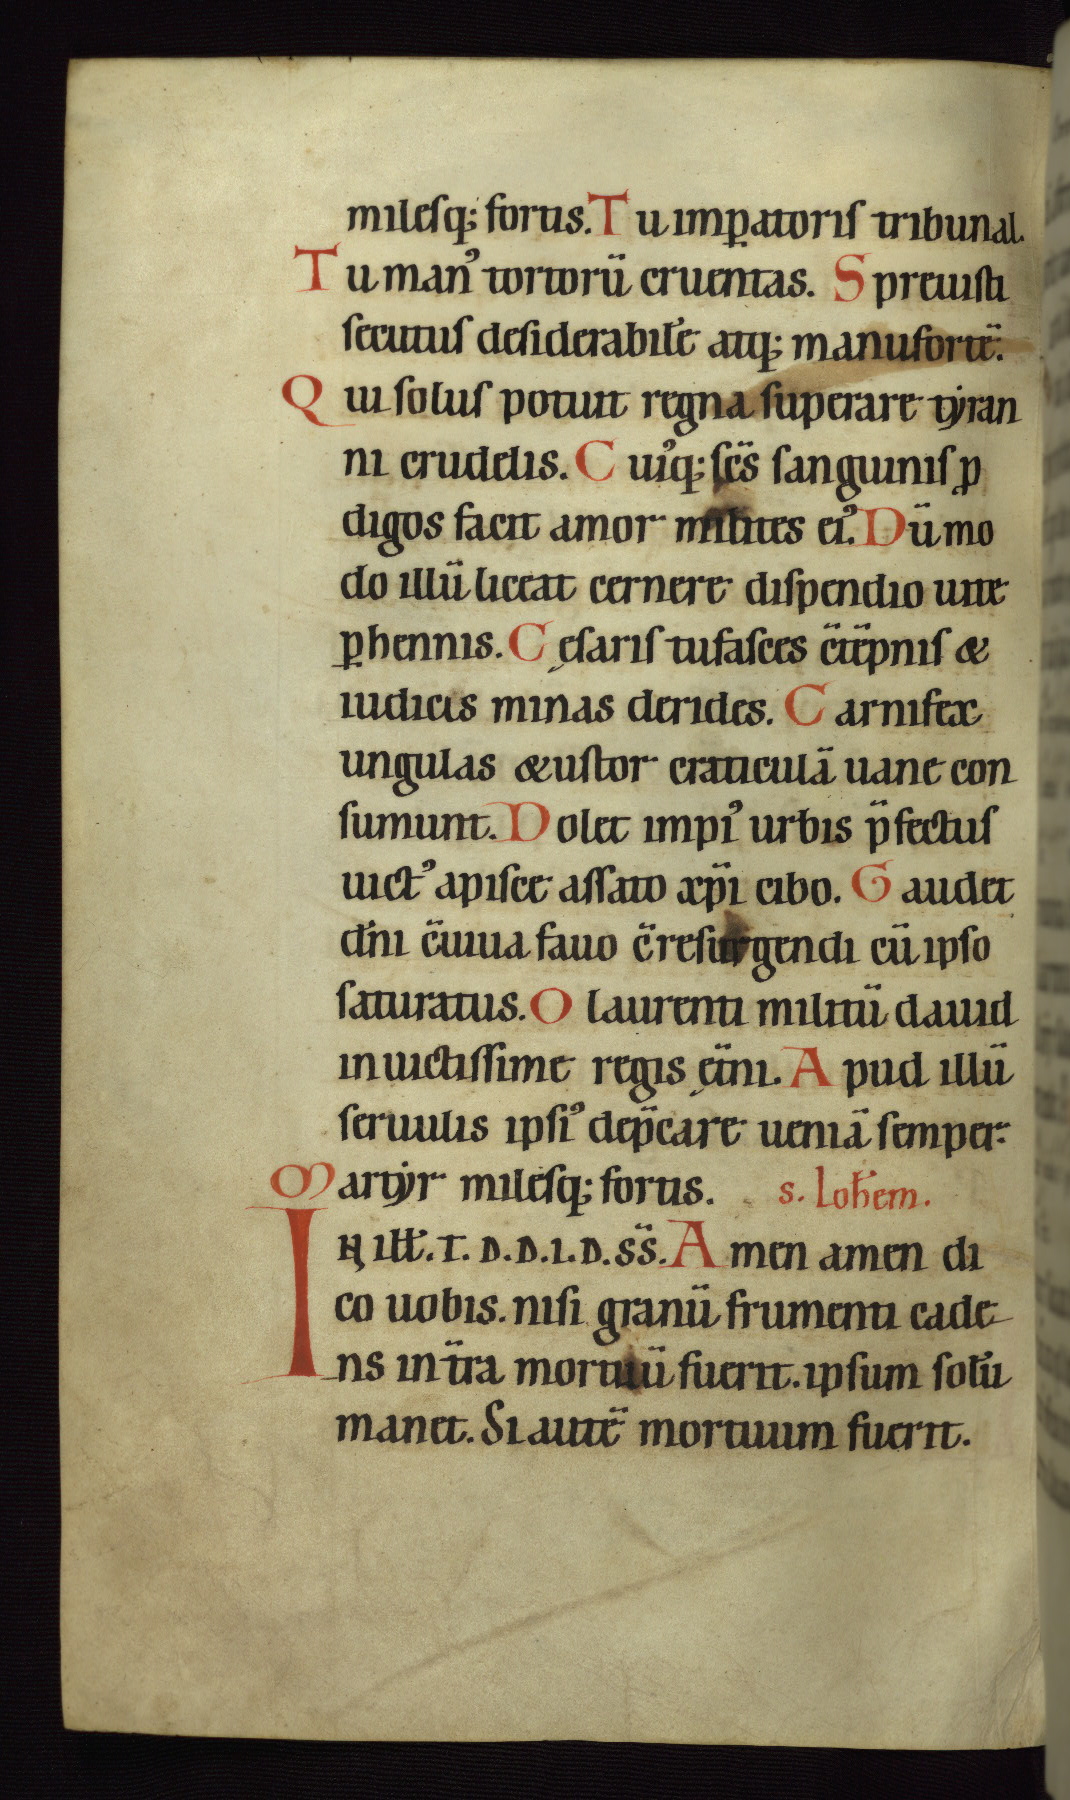 mileſq; fortis. Tu imꝑatoriſ tribunal.
Tu man᾽ tortorū cruentas. Spreuiſti
ſecutuſ deſiderabilē atq; manufortē.
Qui ſoluſ potuit regna ſuperare tẏran
ni crudelis. Cui᾽q; ſc̄s ſanguiniſ ꝓ
digos facit amor milites ei᾽. Dū mo
do illū liceat cernere diſpendio uite
ꝑhennis. Ceſariſ tu faſces c̄tēpniſ &
iudicis minas derides. Carnifex
ungulas & uſtor craticulā uane con
ſumunt. Dolet impi᾽ urbis p̄fectuſ
uict᾽ a piſce aſſato xp̄i cibo. Gaudet
dn̄i c̄uiua fauo c̄reſurgendi cū ipſo
ſaturatus. O laurenti militū dauid
inuictiſſime regis et̄ni. Apud illū
ſeruulis ipſi᾽ dep̄care ueniā ſemper.
Martẏr mileſq; fortis. s. Ioh̄em.
IN ill̄. T. D. D. I. D. SS̄. Amen amen di
co uobis. niſi granū frumenti cade
ns in t̄ra mortuū fuerit. ipſum ſolū
manet. Si autē mortuum fuerit.